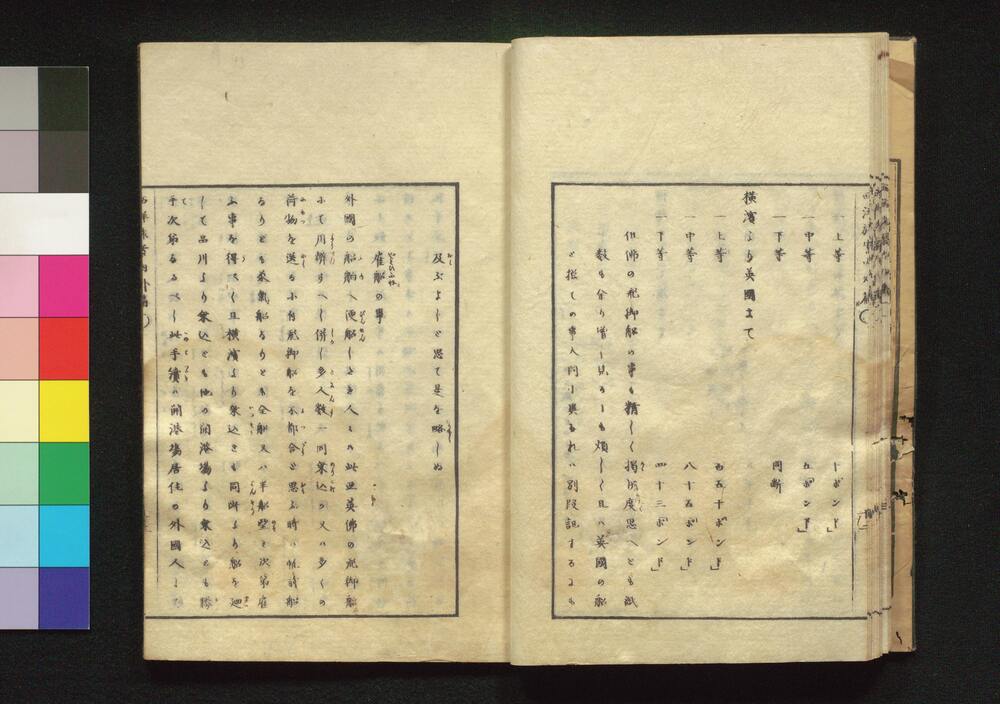 一上等 十ポンド」
一中等 五ポンド」
一下等 同断
横濱より英國まて
一上等 百五十ポンド」
一中等 八十五ポンド」
一下等 四十三ポンド」
但佛の飛脚船の事も精しく掲度思へとも紙
数も分り増し見るにも煩しく且ハ英國の船
と推しての事大同小異なれハ別段記するにも
及ぶましと思て是を略しぬ
雇船の事
外國の船舶へ便船しき人々ハ此英佛の飛脚船
にて用辨すへし併し多人数一同乗込か又ハ多くの
荷物を送るに右飛脚船を不都合と思ふ時ハ帆前船
なりとも蒸氣船なりとも全船又ハ半船望之次第雇
ふ事を得へく且横濱より乗込とも同所より船を廻
して品川より乗込とも他の開港場より乗込とも勝
手次第なるへし此手續ハ開港場居住の外國人に